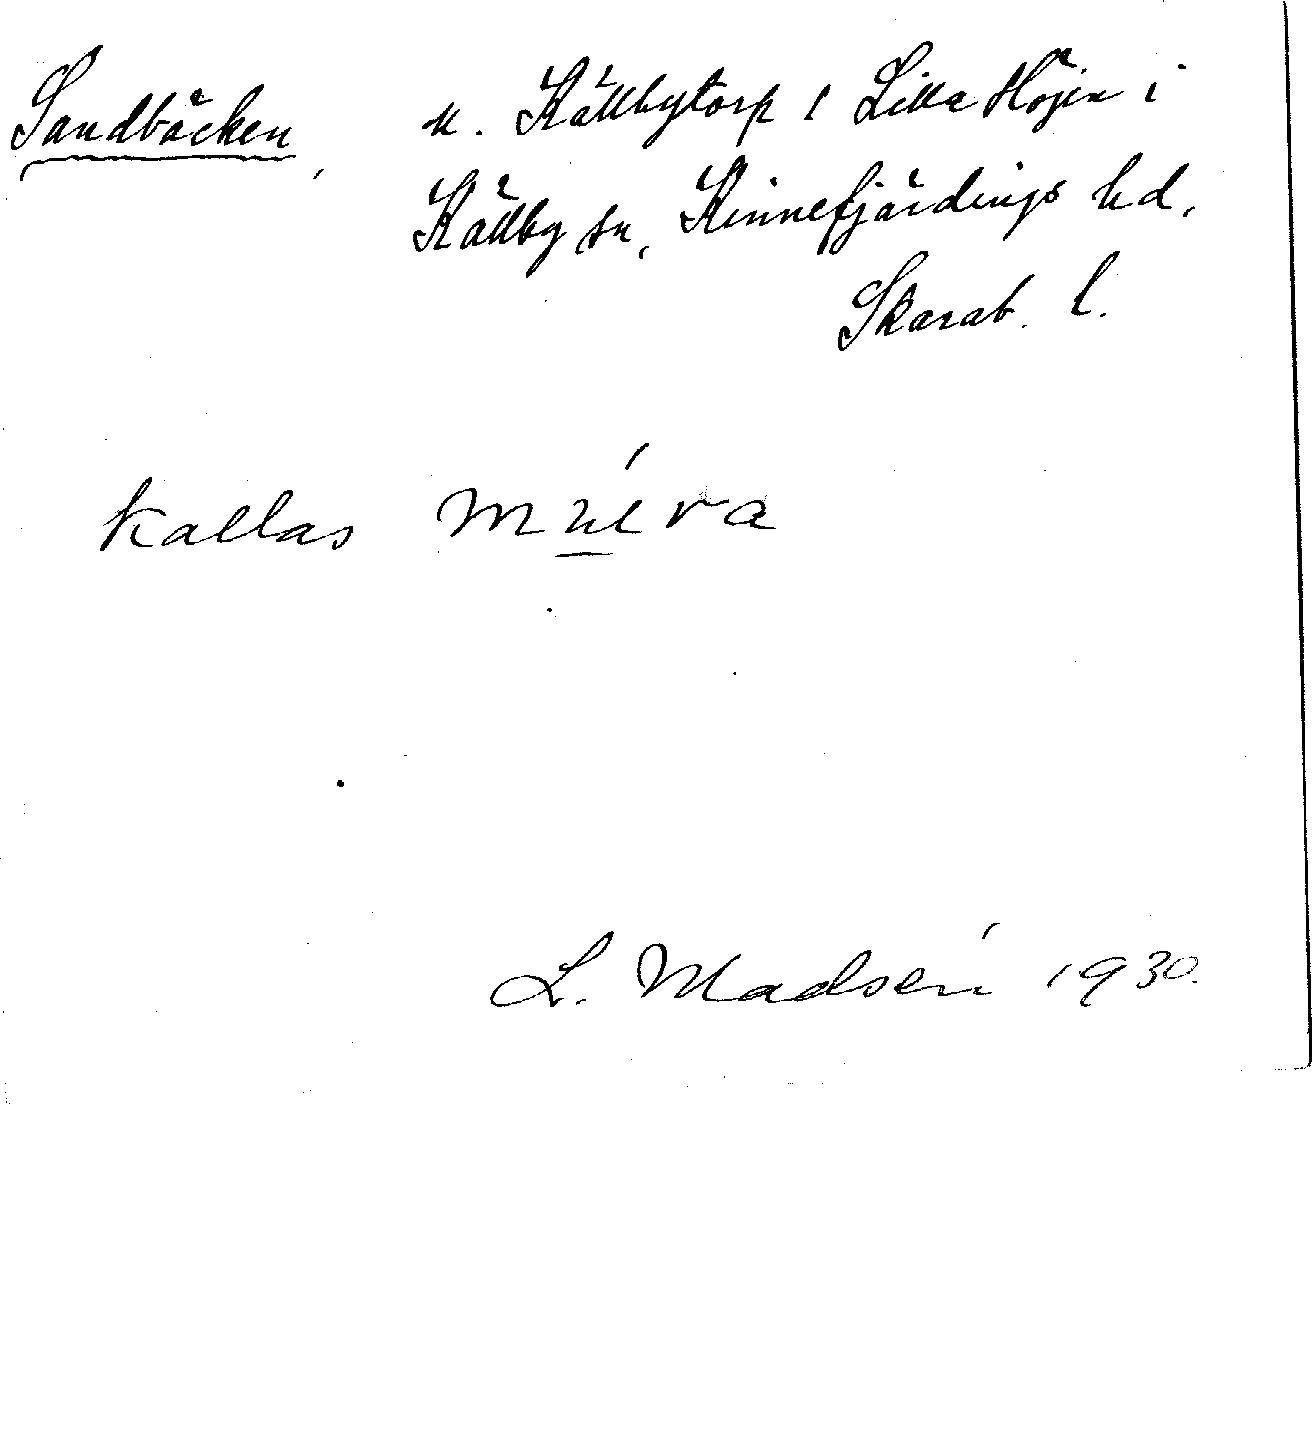 Sandbäcken, u. Källbytorp l Lilla Höjen i
Källby sn, Kinnefjärdings hd,
Skarab. l.
kallas
L. Madsén 1930.